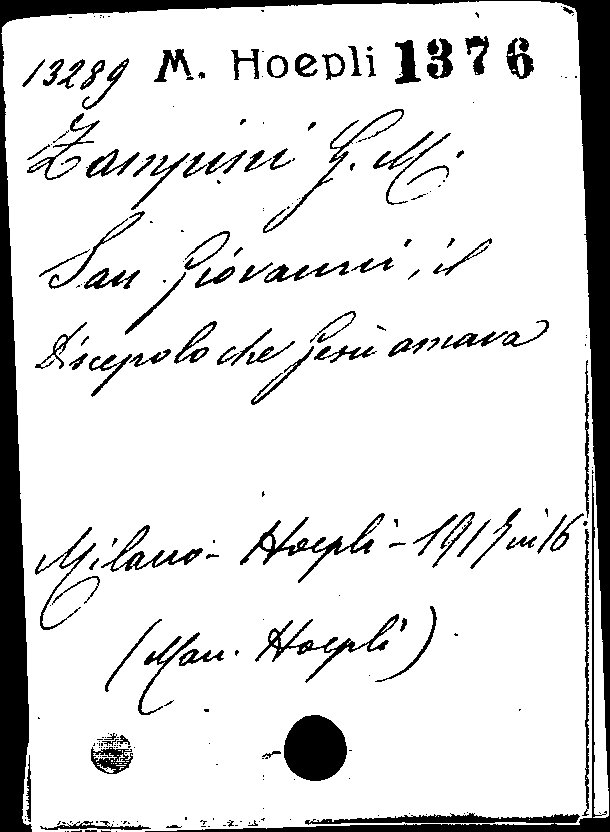 13289 M. Hoepli 1376
Zampini G. M.
San Giovanni, il
Discepolo che Gesù amava
Milano - Hoepli - 1917 in 16
(Man. Hoepli)